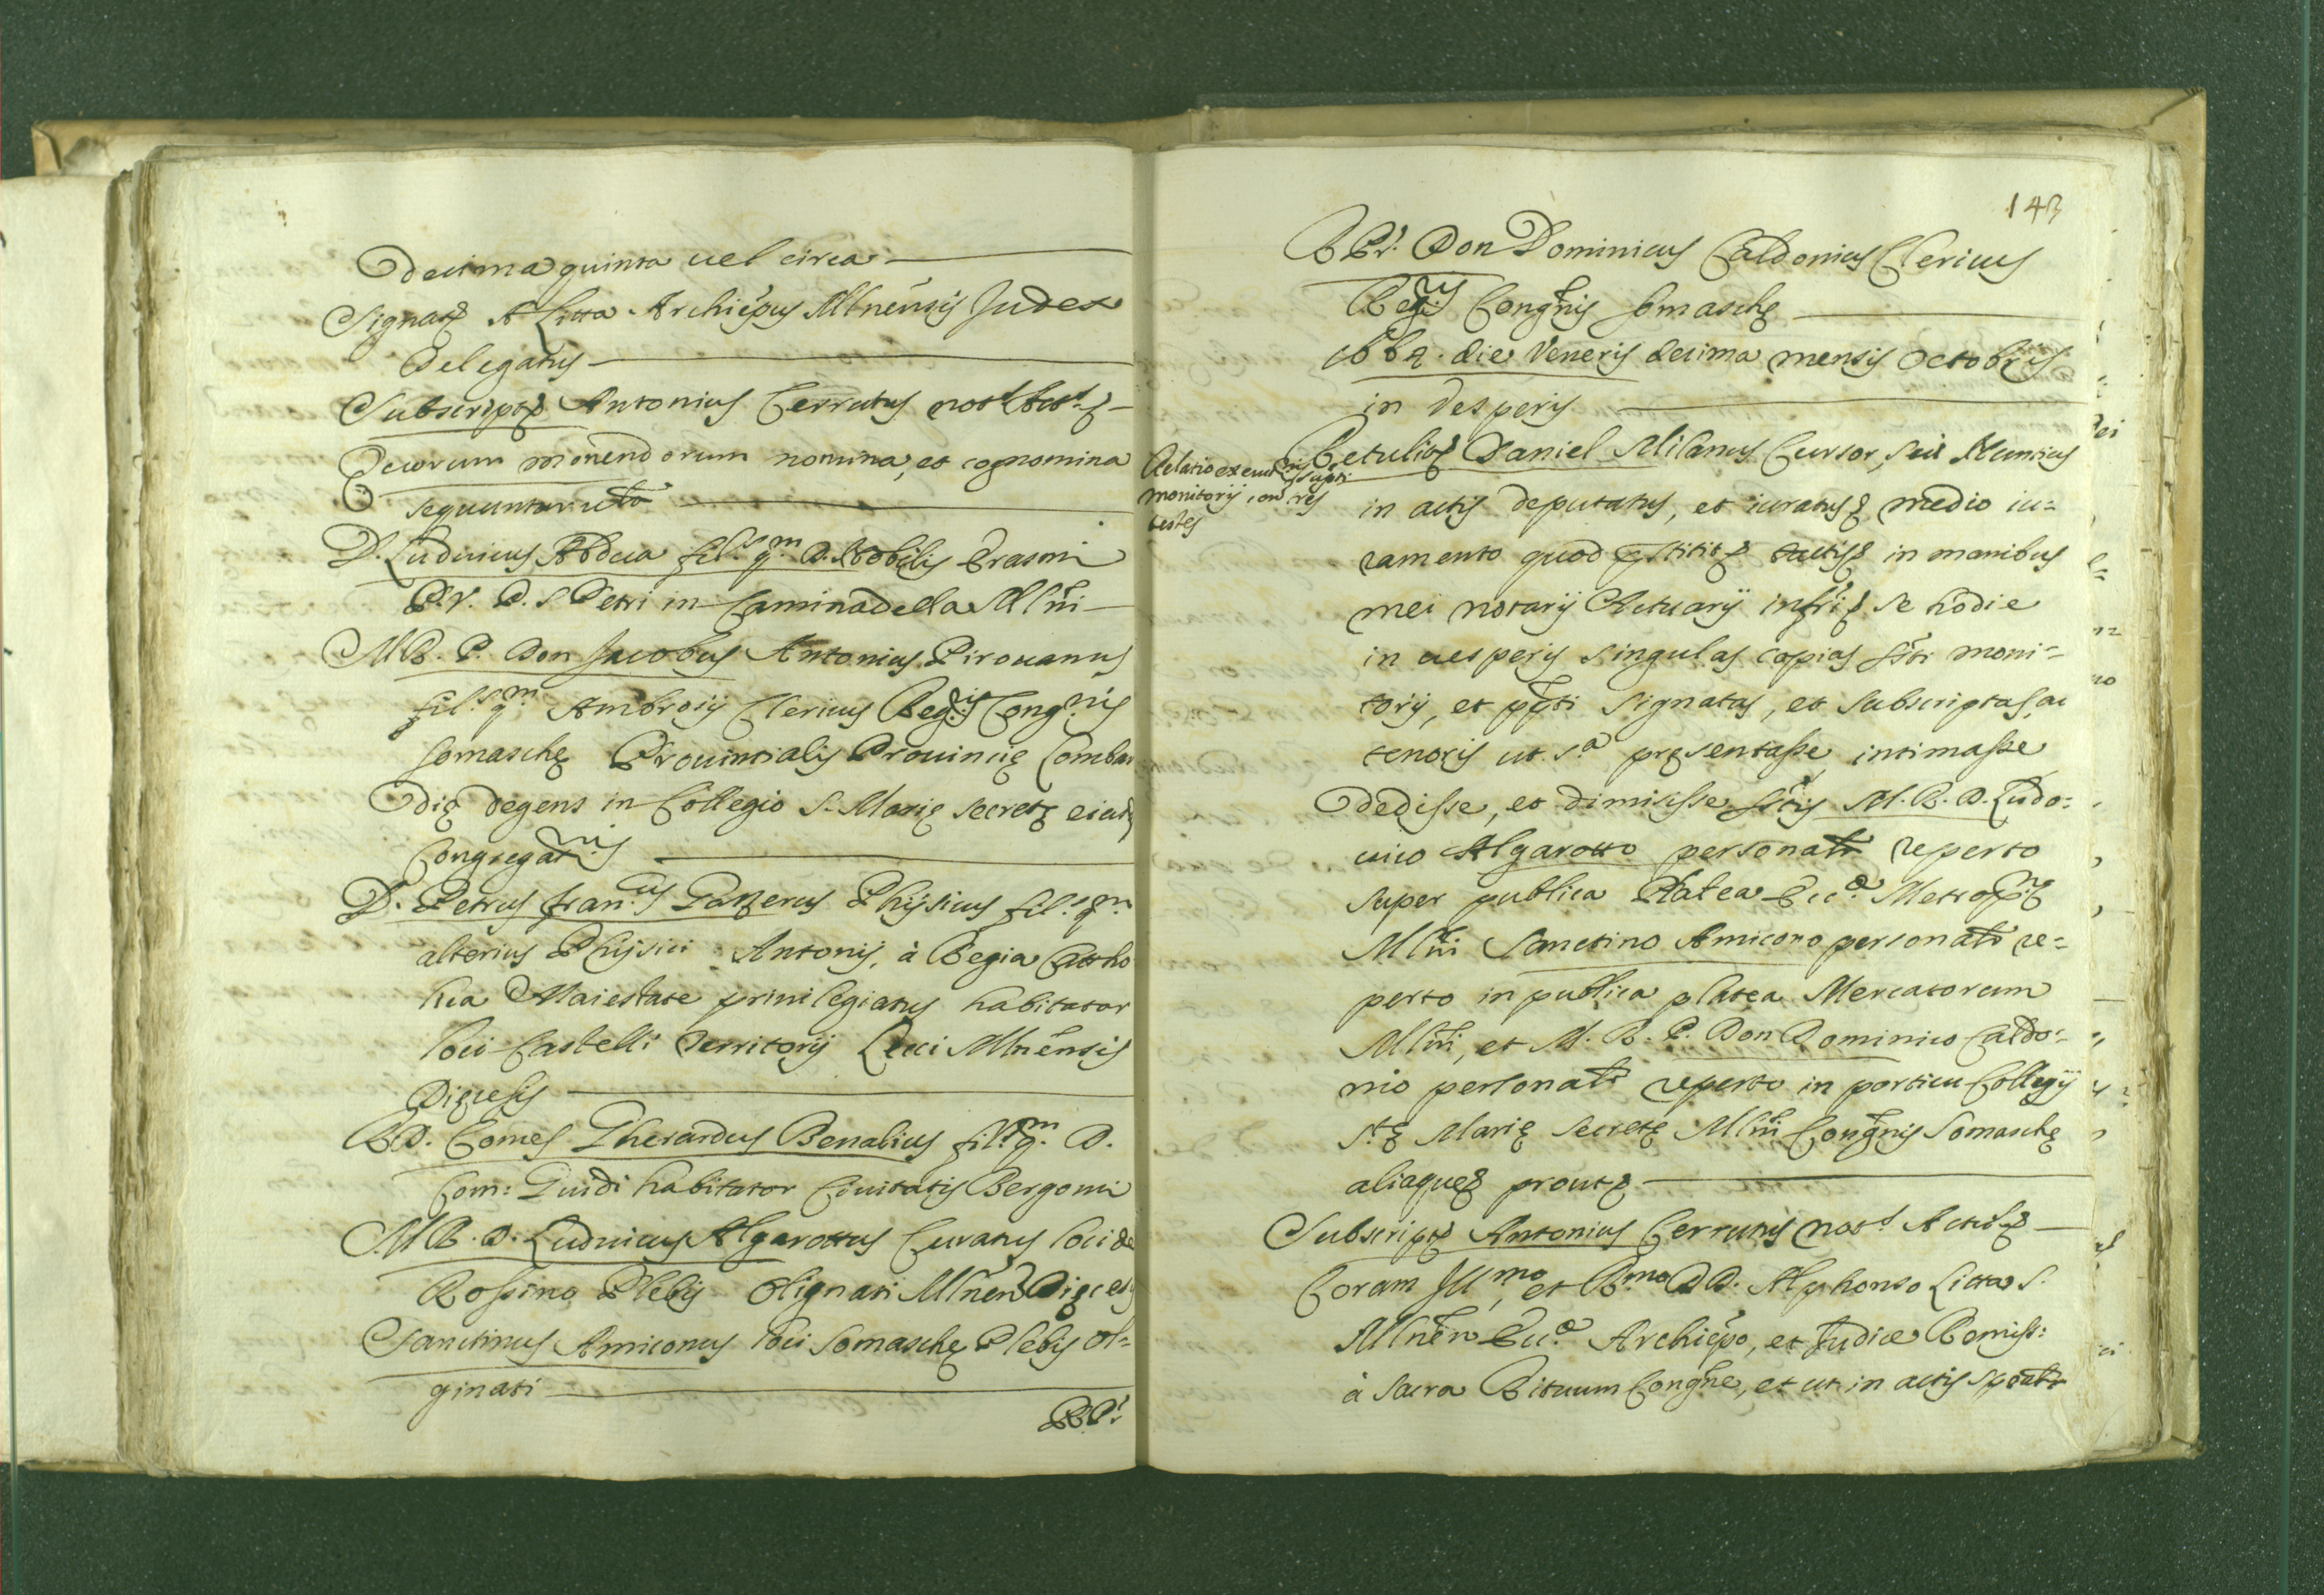 decima quinta uel circa
Signat. A Litta Archiepus Mlnensis Judex
Delegatus
Subscript. Antonius Cerrutus not.s
Quorum monendorum nomina, et cognomina
sequuntur
D. Ludouicus Abdua fil.s q.m D. Nobilis Erasmi
P. V. P. S Petri in Caminadella Mlni
M R. P. Don Jacobus Antonius Pirouanus
fil.s q.m Ambrosij Clericus Reg.ris Cong.nis
Somaschę Prouintialis Prouincię Lombar
dię degens in Collegio S. Marię Secretę eiusd
Congregat.nis
D. Petrus Fran.cus Gazzerus Phijsicus fil.s q.m
alterius Phijsici Antonij, à Regia Catho
lica Maiestate priuilegiatus habitator
loci Castelli Territorij Leuci Mlnensis
Dięcesis
D. Comes Gherardus Benalius fil.s q.m D.
Com: Guidi habitator Ciuitatis Bergomi
M R. D. Ludouicus Algarottus Curatus loci de
Rossino Plebis Olignati Mlnen Dięces
Sanctinus Amiconus loci Somaschę Plebis Ol=
ginati
143
Don Dominicus Caldonius Clericus
Reg.ris Congnis Somaschę
die Veneris decima mensis Octobris
in Vesperis
Relatio
monitorij con tres
testes
Retulit Daniel Milanus Cursor, seu Nuncius
in actis deputatus, et iuratus medio iu=
ramento quod pstitit tactis in manibus
mei notarij Actuarij infrti se hodie
in uesperis singulas copias sti moni=
torij, et ppti signatas, et subscriptas, ac
tenoris ut s.a pręsentasse, intimasse
dedisse, et dimisisse M. R. D. Ludo:
uico Algarotto personalr reperto
super publica Platea Ecc.ę Metrop.nę
Mlni Sanctino Amicono personalr re=
perto in publica platea Mercatorum
Mlni, et M. R. P. Don Dominico Caldo=
nio personalr reperto in porticu Collegij
S.tę Marię Secretę Mlni Congnis Somaschę
aliaque prout
Subscript. Antonius Cerrutus not.s
Coram Ill.mo, et R.mo DD. Alphonso Litta S.
Mlnen Ecc.ę Archiepo, et Judice Remiss:
à Sacra Rituum Congne, et ut in actis